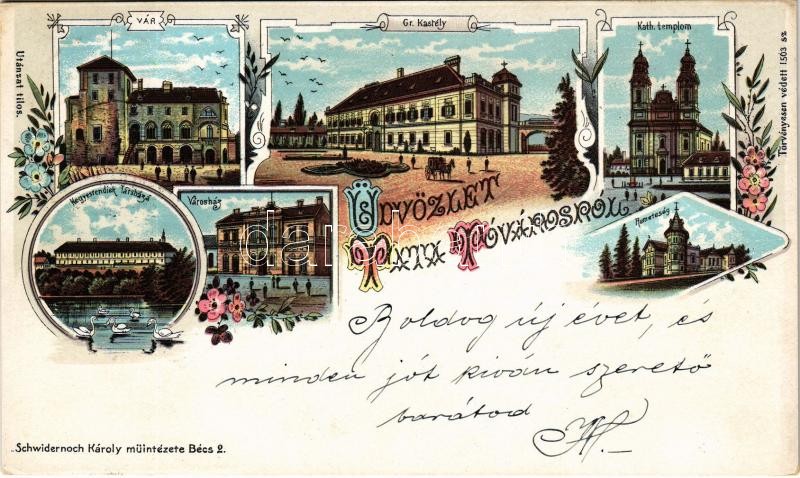 VÁR
Gr. Kastély
Kath. templom
Utánzat tilos.
Törvényesen védett 1503 sz
Kegyesrendiek Társháza
Városház
Remeteség
ÜDVÖZLET
TATA TÓVÁROSROL
darabanth
Boldog új évet, és
minden jót kiván szerető
barátod
Schwidernoch Károly müintézete Bécs 2.